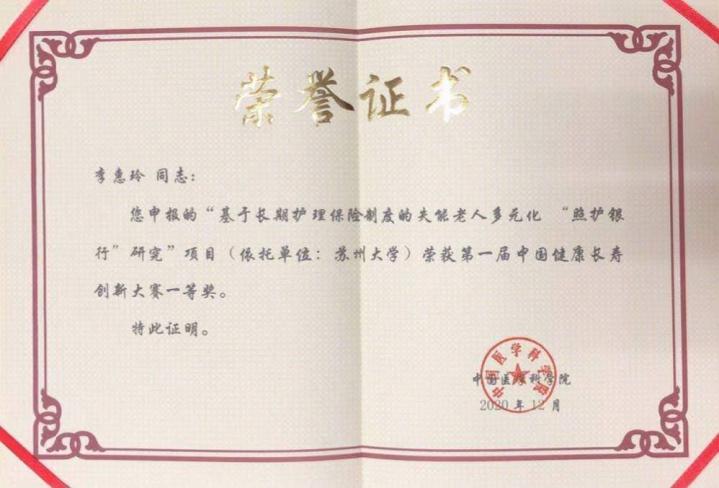 荣誉证书
李惠玲 同志：
您申报的“基于长期护理保险制度的失能老人多元化 “照护银
行”研究”项目（依托单位：苏州大学）荣获第一届中国健康长寿
创新大赛一等奖。
特此证明。
中国医学科学院
中国医学科学院
2020 年 12 月